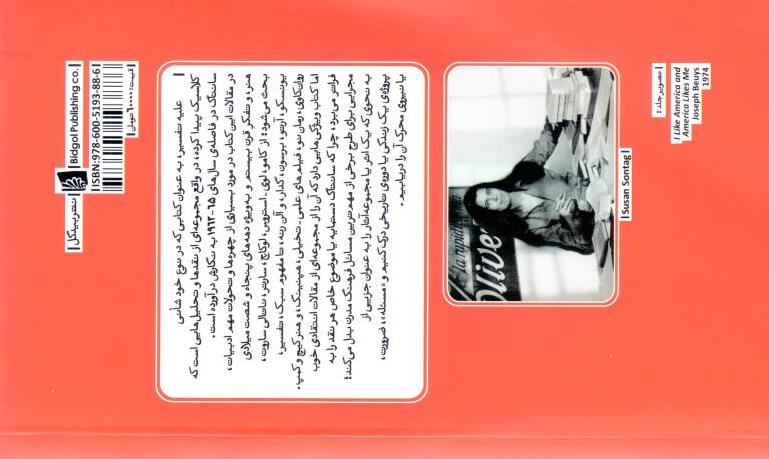 تصویر جلد:
I Like America and
America Likes Me
Joseph Beuys
1974
Susan Sontag
la rapida
olive
علیه تفسیر، به عنوان کتابی که در نوع خود شأنی
کلاسیک پیدا کرده، در واقع مجموعه‌ای از نقدها و تحلیل‌هایی است که
سانتاگ در فاصله‌ی سال‌های ۶۵-۱۹۶۲ به نگارش درآورده است.
در مقالات این کتاب در مورد بسیاری از چهره‌ها و تحولات مهم ادبیات،
هنر، و تفکر قرن بیستم و به‌ویژه دهه‌های پنجاه و شصت میلادی
بحث می‌شود: از کامو، لوی-استروس، لوکاچ، سارتر، ناتالی ساروت،
یونسکو، آرتو، برسون، گدار، و آلن رنه، تا مفهوم سبک، تفسیر،
روان‌کاوی، رمان نو، فیلم‌های علمی-تخیلی، هپنینگ، و هنر کیچ و کمپ.
اما کتاب ویژگی‌هایی دارد که آن را از مجموعه‌ای از مقالات انتقادی خوب
فراتر می‌برد، چرا که سانتاگ دستمایه یا موضوع خاص هر نقد را به
مجرایی برای طرح برخی از مهم‌ترین مسائل فرهنگ مدرن بدل می‌کند؛
به نحوی که یک اثر یا مجموعه‌آثار را به عنوان جزیی از
پروژه‌ی یک زندگی یا دوره‌ی تاریخی درک کنیم و «مسئله»، ضرورت،
یا نیروی محرک آن را دریابیم.
نشر بیدگل
Bidgol Publishing co.
ISBN:978-600-5193-88-6
قیمت: ۱۰۰۰۰ تومان